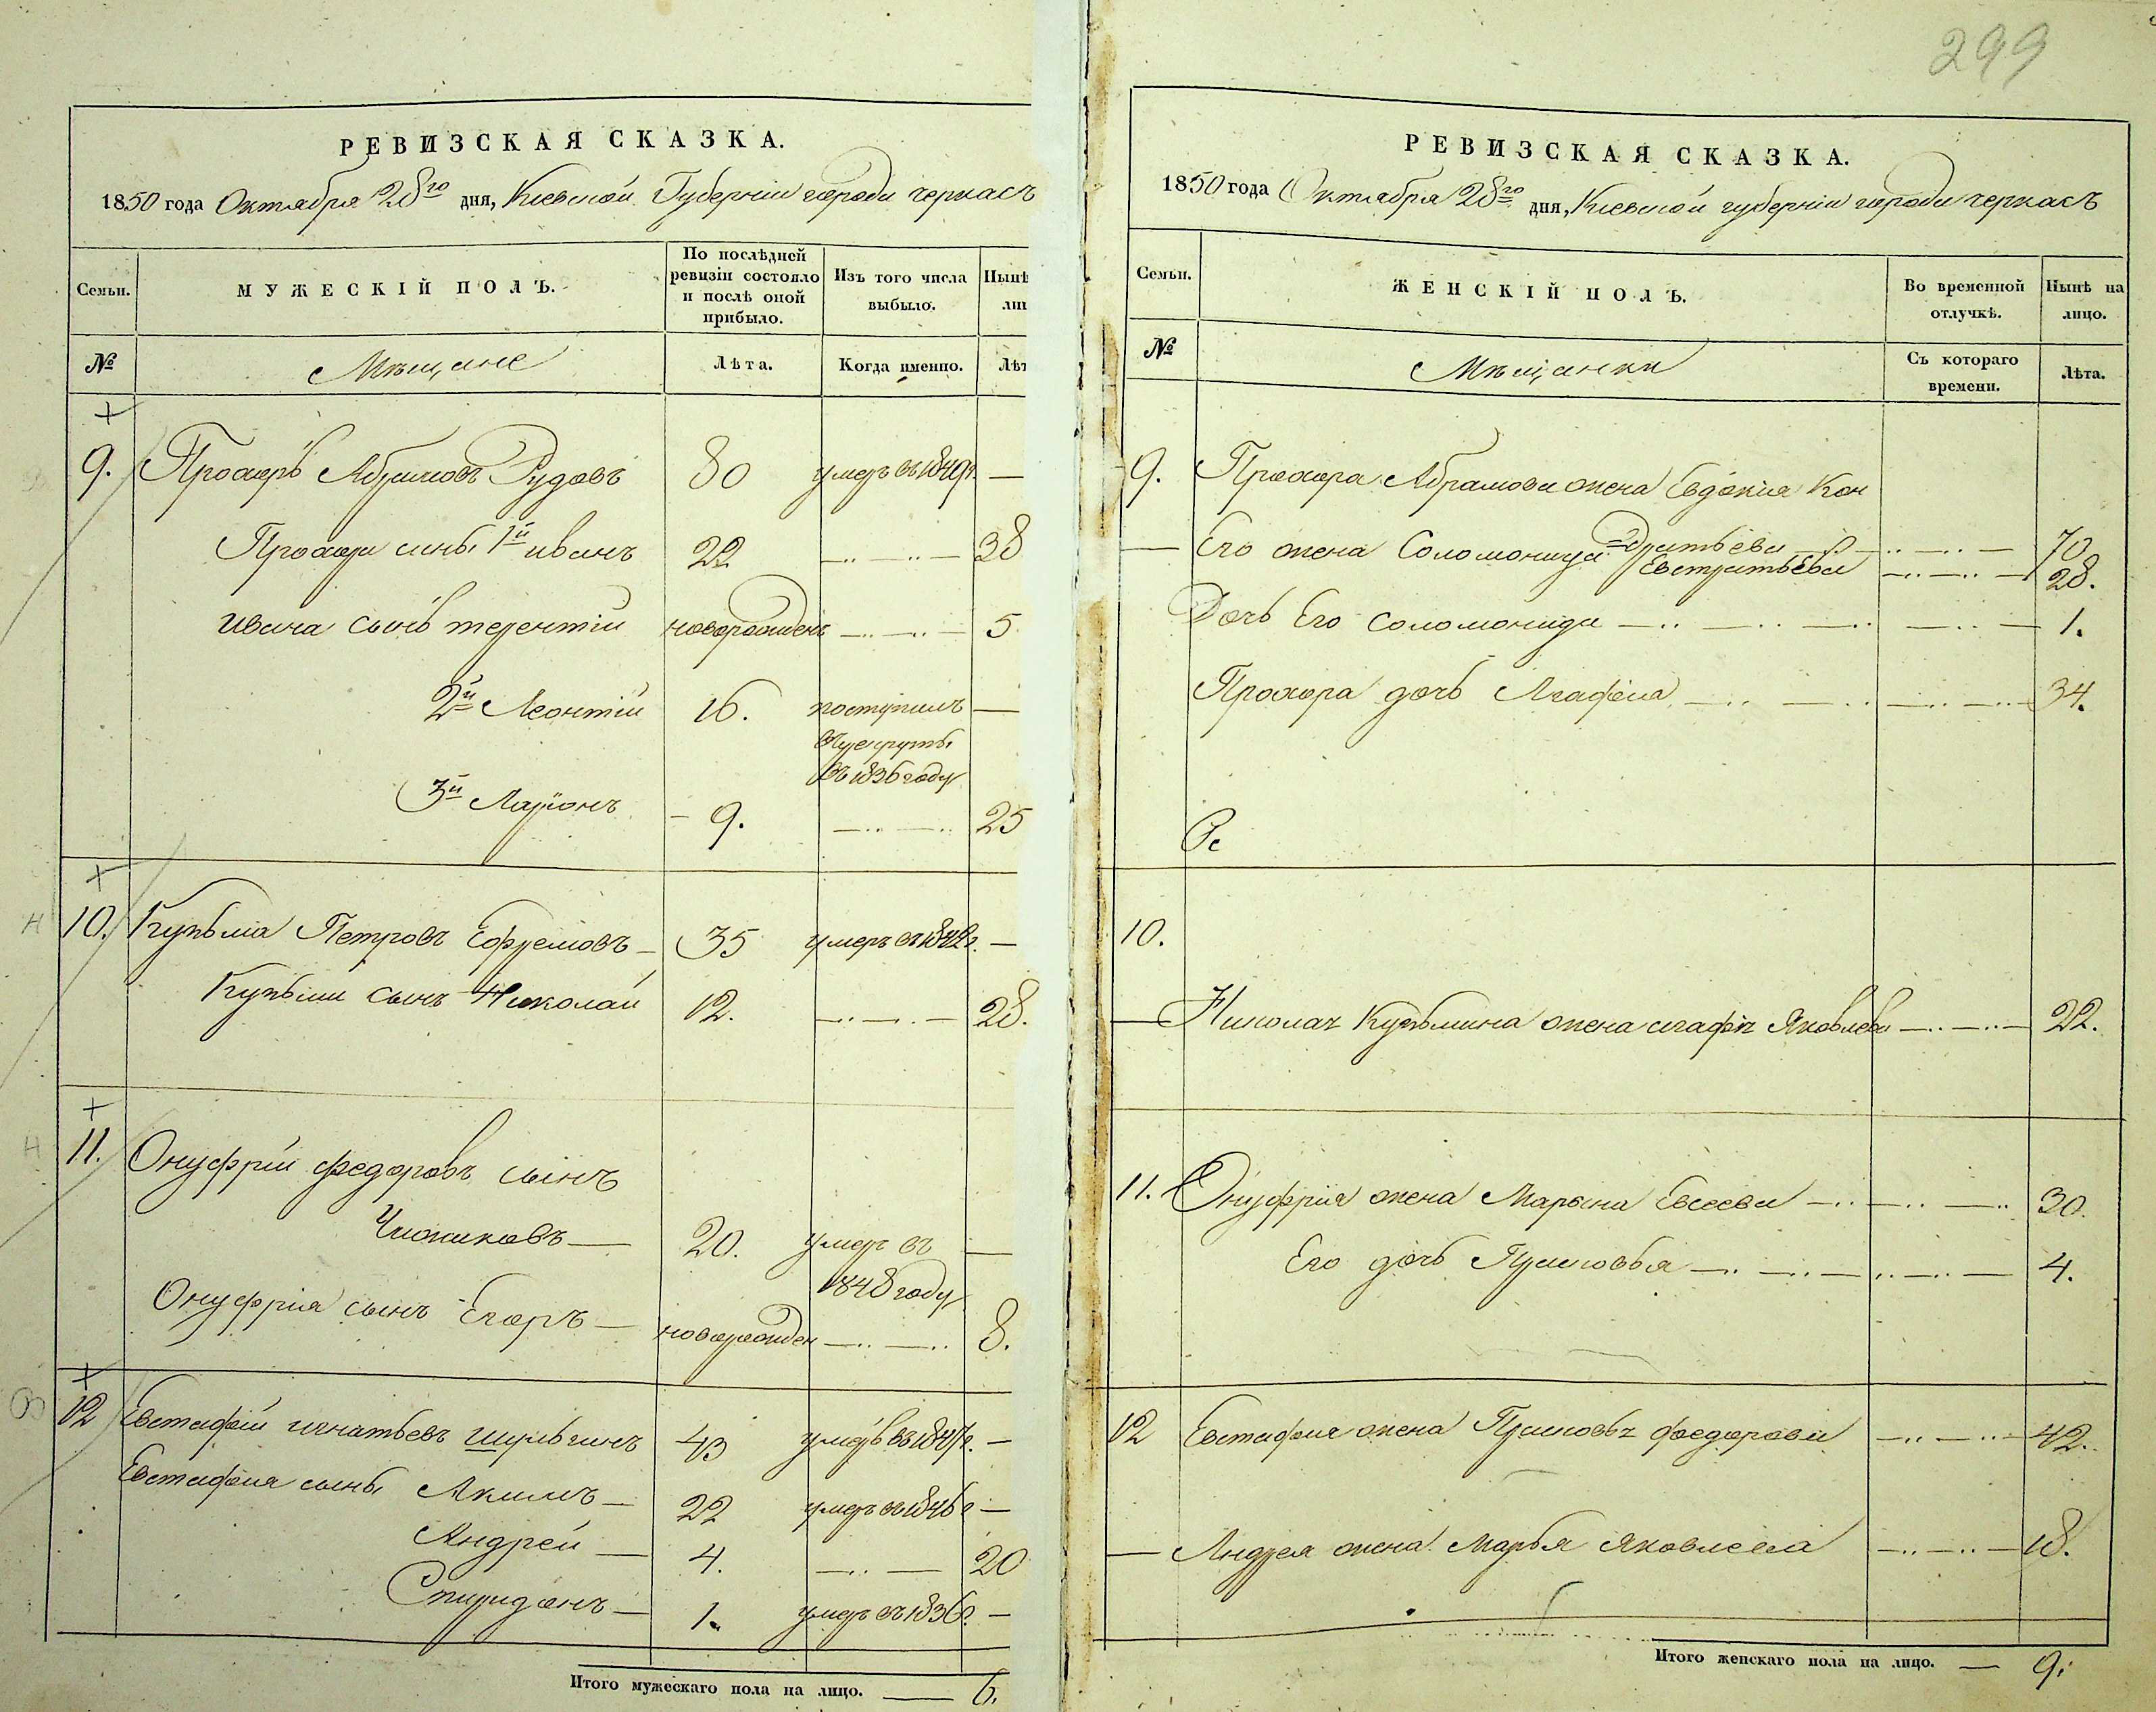 299
РЕВИЗСКАЯ СКАЗКА.
1850 года Октября 28го дня, Киевской Губерніи города черкасъ
Семьи.
МУЖЕСКІЙ ПОЛЪ.
По послѣдней
ревизіи состояло
и послѣ оной
прибыло.
Изъ того числа
выбыло.
Нынѣ
ли
№
Мѣщане
Лѣта.
Когда именно.
Лѣт
9. Прохоръ Абрамовъ Рудовъ 80 умеръ въ 1849г. —
Прохора сынъ 1й иванъ 22 — 38
Ивана сынъ терентій новорожденъ — 5
2й Леонтій 16. поступилъ —
въ рекруты
въ 1836 году
3й Ларіонъ 9. — 25
10. Кузьма Петровъ Ефремовъ — 35 умеръ въ 1842г. —
Кузьмы сынъ Николай 12. — 28.
11. Онуфрій федоровъ сынъ
Чижиковъ — 20. умеръ въ —
1848 году
Онуфрія сынъ Егоръ — новорожден — 8.
12 Евстафій игнатьевъ шульгинъ 43 умеръ въ 1847г. —
Евстафія сынъ Акимъ — 22 умеръ въ 1846г —
Андрей — 4. — 20
Спиридонъ — 1. умеръ въ 1836г. —
Итого мужескаго пола на лицо. — 6.
РЕВИЗСКАЯ СКАЗКА.
1850 года Октября 28го дня, Киевской губерніи города черкасъ
Семьи.
ЖЕНСКІЙ ПОЛЪ.
Во временной
отлучкѣ.
Нынѣ на
лицо.
№
Мѣщанки
Съ котораго
времени.
Лѣта.
9. Прохора Абрамова жена Евдокія Кон
дратьева — 70
— Его жена Соломонида Евстратьева — 28.
Дочь Его Соломонида — 1.
Прохора дочь Агафія — 34.
10.
— Николая Кузьмина жена агафія Яковлева — 22.
11. Онуфрія жена Марьяна Евсеева — 30.
Его дочь Прасковья — 4.
12 Евстафия жена Прасковья федорова — 42.
— Андрея жена Марья Яковлева — 18.
Итого женскаго пола на лицо. — 9.